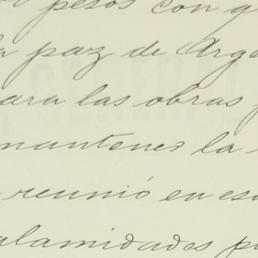 pesos con
la paz de
para las obras
mantener la
reunió en es
calamidades p